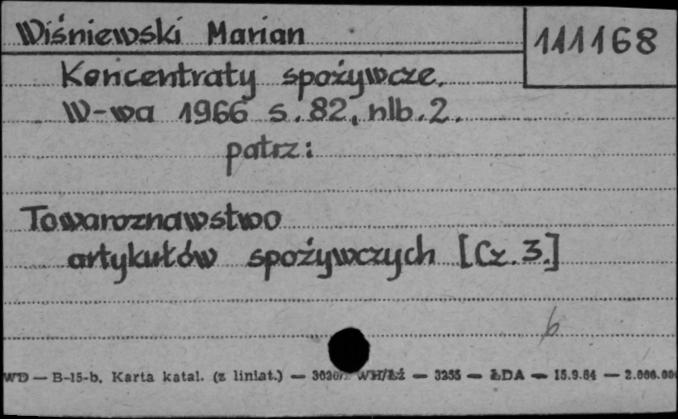 Wiśniewski Marian
111168
Koncentraty spożywcze.
W-wa 1966 s. 82, nlb. 2.
patrz:
Towaroznawstwo
artykułów spożywczych [Cz. 3.]
b
WD — B-15-b. Karta katal. (z liniat.) — WH/Łź — 3255 — ŁDA — 15.9.64 — 2.000.00